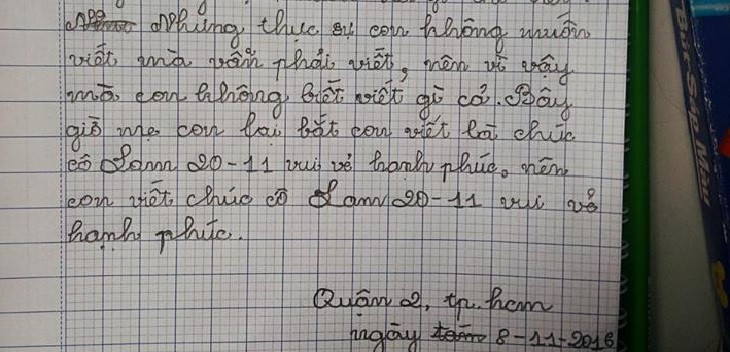 Nhưng thực sự con không muốn
viết mà vẫn phải viết, nên vì vậy
mà con không biết viết gì cả. Bây
giờ mẹ con lại bắt con viết là chúc
cô Lam 20-11 vui vẻ hạnh phúc, nên
con viết chúc cô Lam 20-11 vui vẻ
hạnh phúc.
Quận 2, tp. hcm
ngày 8-11-2016
Bút Sáp Màu